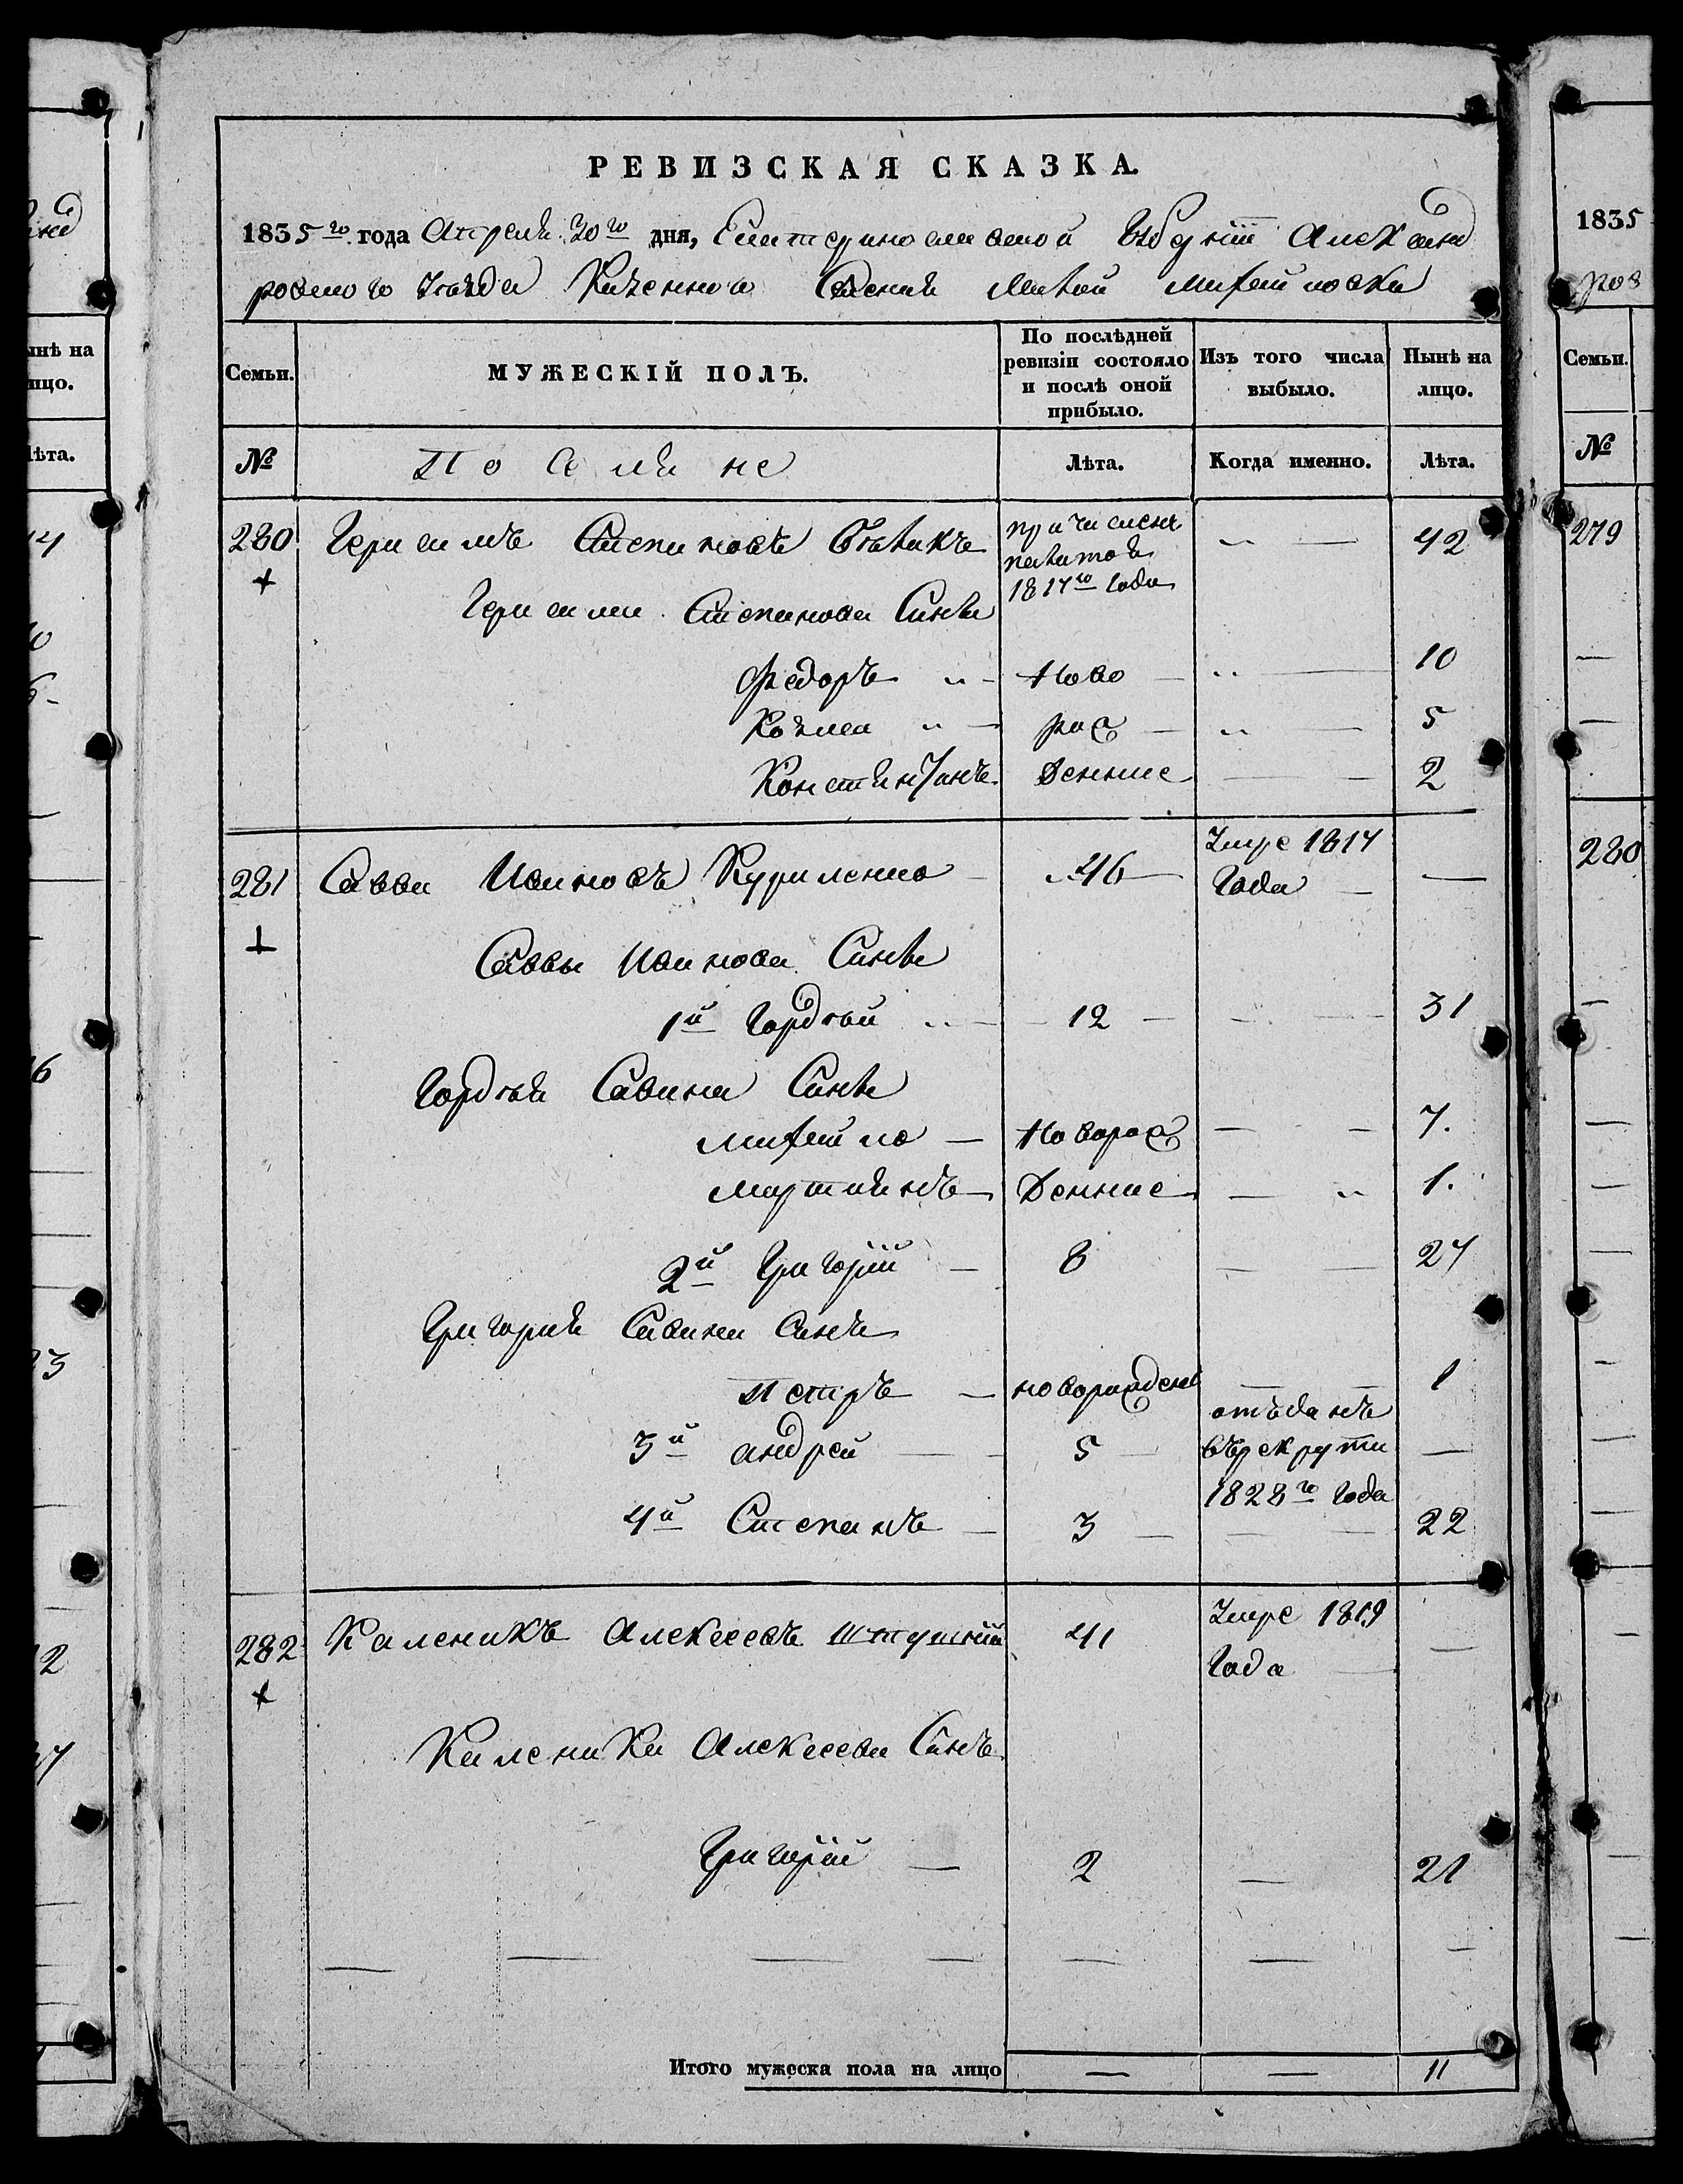 РЕВИЗСКАЯ СКАЗКА.
1835го года Апреля 30го дня, Екатеринославской Губерніи Александ
ровского уезда Казенного Селенія Малой Михайловки
Семьи. МУЖЕСКІЙ ПОЛЪ. По послѣдней ревизіи состояло и послѣ оной прибыло. Изъ того числа выбыло. Нынѣ на лицо.
№ Поселяне Лѣта. Когда именно. Лѣта.
280 Герасимъ Степановъ причисленъ 1817го года 42
Герасима Степанова Сины
Федоръ Ново 10
Козма рож 5
Константинъ Денние 2
281 Савва Ивановъ Куриленко 46 Умре 1817 года —
Саввы Иванова Сины
1й Гордѣй 12 — 31
Гордѣя Савина Сины
Михайло — Новорож — 7.
Мартинъ Денние — 1.
2й Григорій — 8 — 27
Григорія Савина Синъ
Петръ — новорожденъ — 1
3й Андрей — 5 — отъданъ въ рекрути 1828го года —
4й Степанъ — 3 — 22
282 Каленикъ Алексеевъ 41 Умре 1819 Года —
Каленика Алексеева Синъ
Григорій — 2 — 21
Итого мужеска пола на лицо — — 11
нѣ на
ицо.
ѣта.
1835
ров
Семьи.
№
279
280